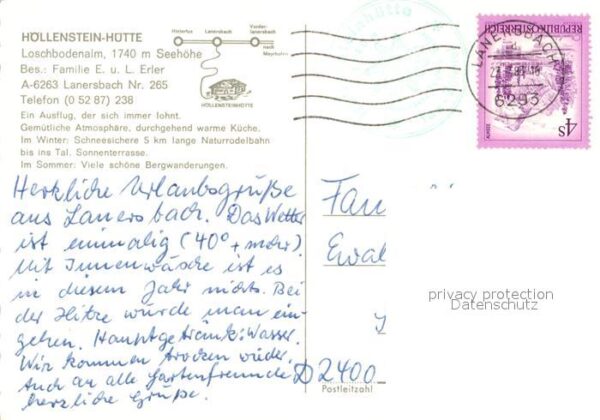 HÖLLENSTEIN-HÜTTE
Loschbodenalm, 1740 m Seehöhe
Bes.: Familie E. u. L. Erler
A-6263 Lanersbach Nr. 265
Telefon (0 52 87) 238
Ein Ausflug, der sich immer lohnt.
Gemütliche Atmosphäre, durchgehend warme Küche.
Im Winter: Schneesichere 5 km lange Naturrodelbahn
bis ins Tal. Sonnenterrasse.
Im Sommer: Viele schöne Bergwanderungen.
Hintertux
Lanersbach
Vorder-
lanersbach
nach
Mayrhofen
HÖLLENSTEINHÜTTE
REPUBLIK ÖSTERREICH
4S
LANERSBACH
6293
Herzliche Urlaubsgrüße
aus Lanersbach. Das Wetter
ist einmalig (40° + mehr)
Mit Innenwäsche ist es
in diesem Jahr nichts. Bei
der Hitze würde man ein
gehen. Hauptgetränk: Wasser.
Wir kommen trocken wieder.
Auch an alle Gartenfreunde
herzliche Grüße.
Fam
Ewal
D 2400
Postleitzahl
privacy protection
Datenschutz